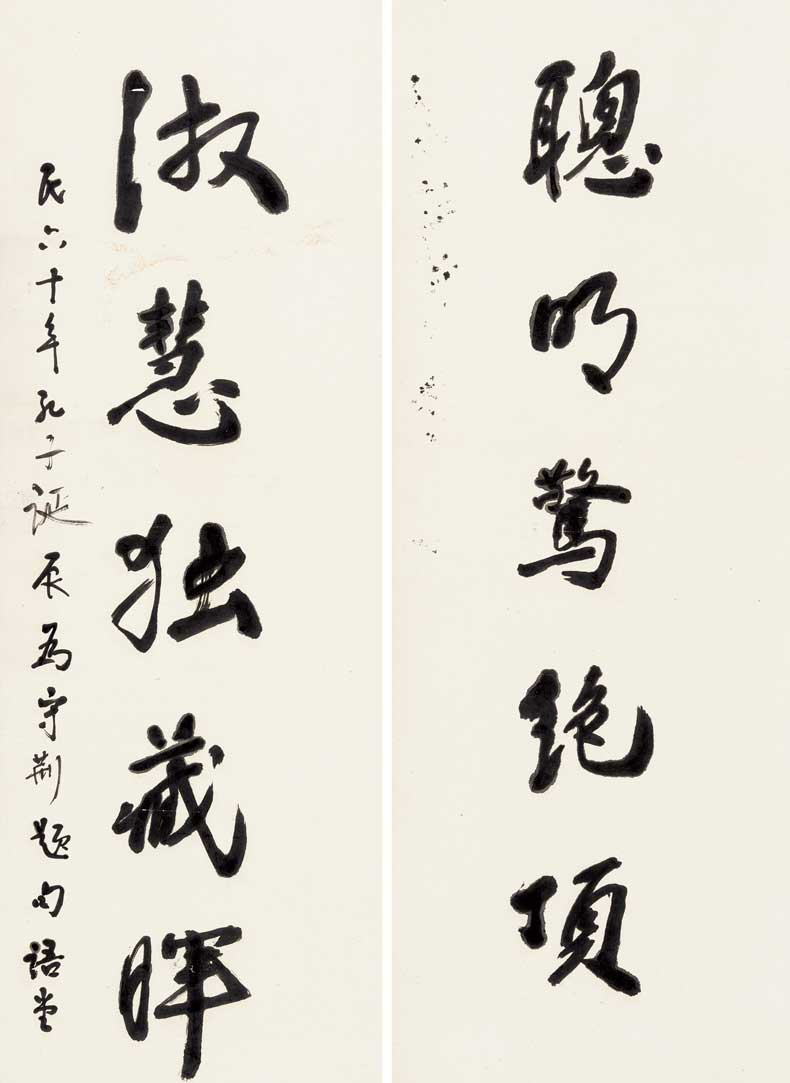 聰明驚絕頂
淑慧独藏暉
民六十年孔子誕辰為守荆題句語堂